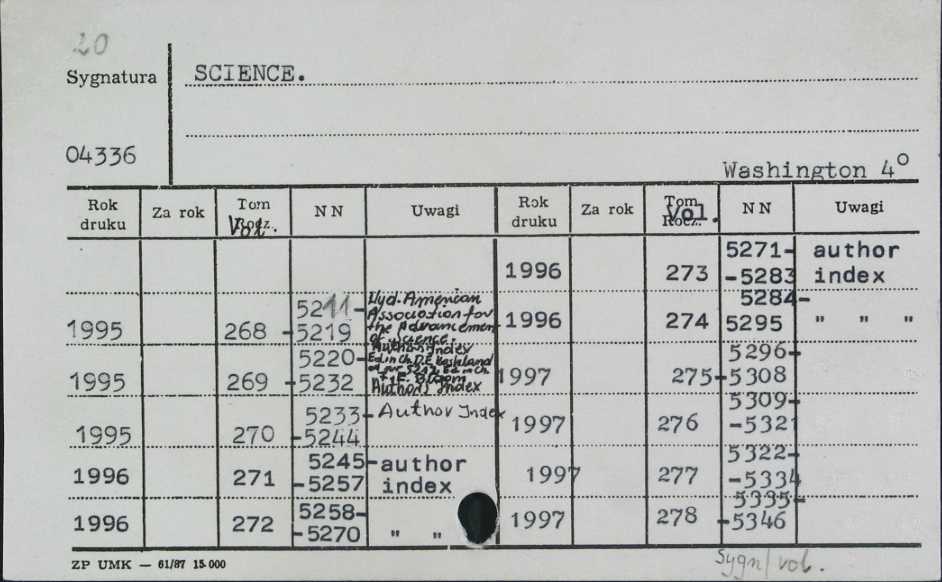 20
Sygnatura SCIENCE.
04336
Washington 4°
Rok druku Za rok Tom Rocz. Vol. NN Uwagi Rok druku Za rok Tom Rocz. Vol. NN Uwagi
1996 273 5271- -5283 author index
1995 268 5211- -5219 Wyd. American Association for the Advancement of Science. Author Index
1996 274 5284- 5295 " " "
1995 269 5220- -5232 Ed in Ch. D.E. Koshland F.E. Bloom Author's Index
1997 275 5296- -5308
1995 270 5233- -5244 Author Index
1997 276 5309- -5321
1996 271 5245- -5257 author index
1997 277 5322- -5334
1996 272 5258- -5270 " "
1997 278 5335- -5346
ZP UMK — 61/87 15.000
Sygn/vol.